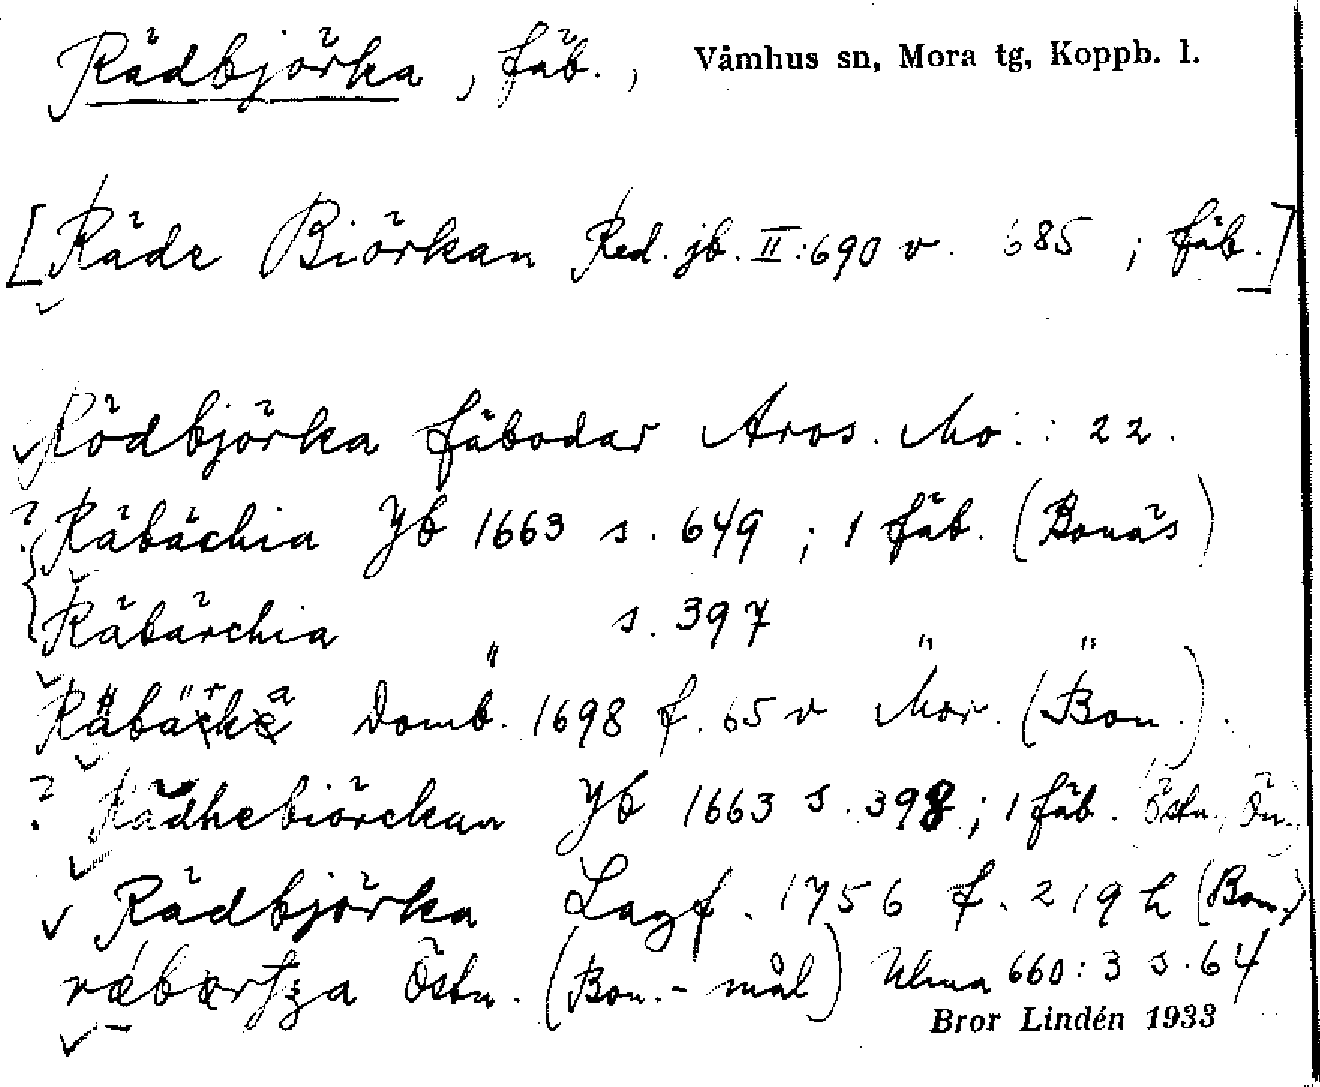 Rädbjörka, fäb., Våmhus sn, Mora tg, Koppb. l.
[Räde Biörkan Red. jb. II:690 v. 685 ; fäb.]
Rödbjörka fäbodar Aros. Mo.: 22.
? Räbächia Jb 1663 s. 649 ; 1 fäb. (Bonäs)
Räbärchia " s. 397 " "
Domb. 1698 f. 65 v Mor. (Bon.).
? Rädhebiörckan Jb 1663 s. 398 ; 1 fäb. Östn.
Rädbjörka Lagf. 1756 f. 219 h (Bon.)
Östn. (Bon.- mål) Ulma 660:3 s. 64
Bror Lindén 1933